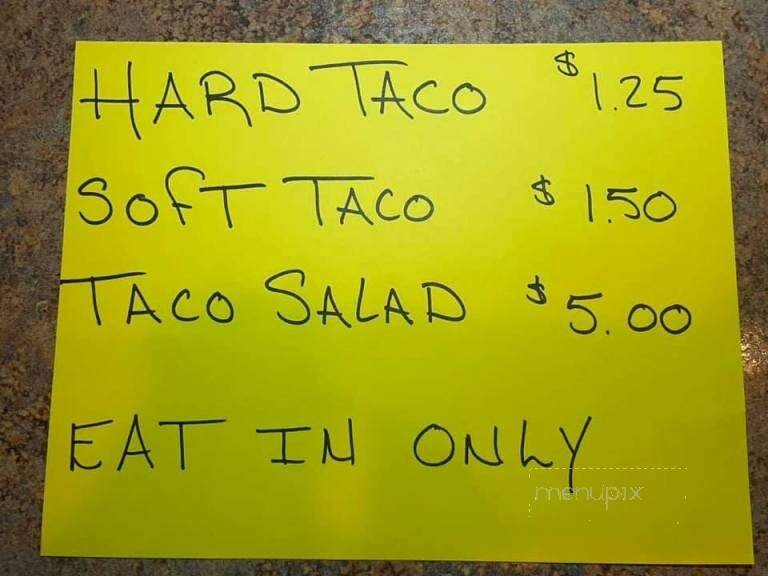 HARD TACO $1.25
SOFT TACO $1.50
TACO SALAD $5.00
EAT IN ONLY
menupix